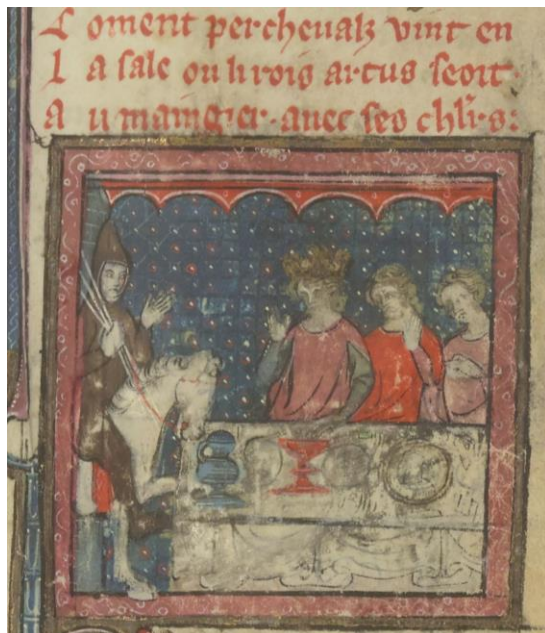 C oment percheualz vint en
l a sale ou li rois artus seoit
a u maingier. auec ses chlrs: